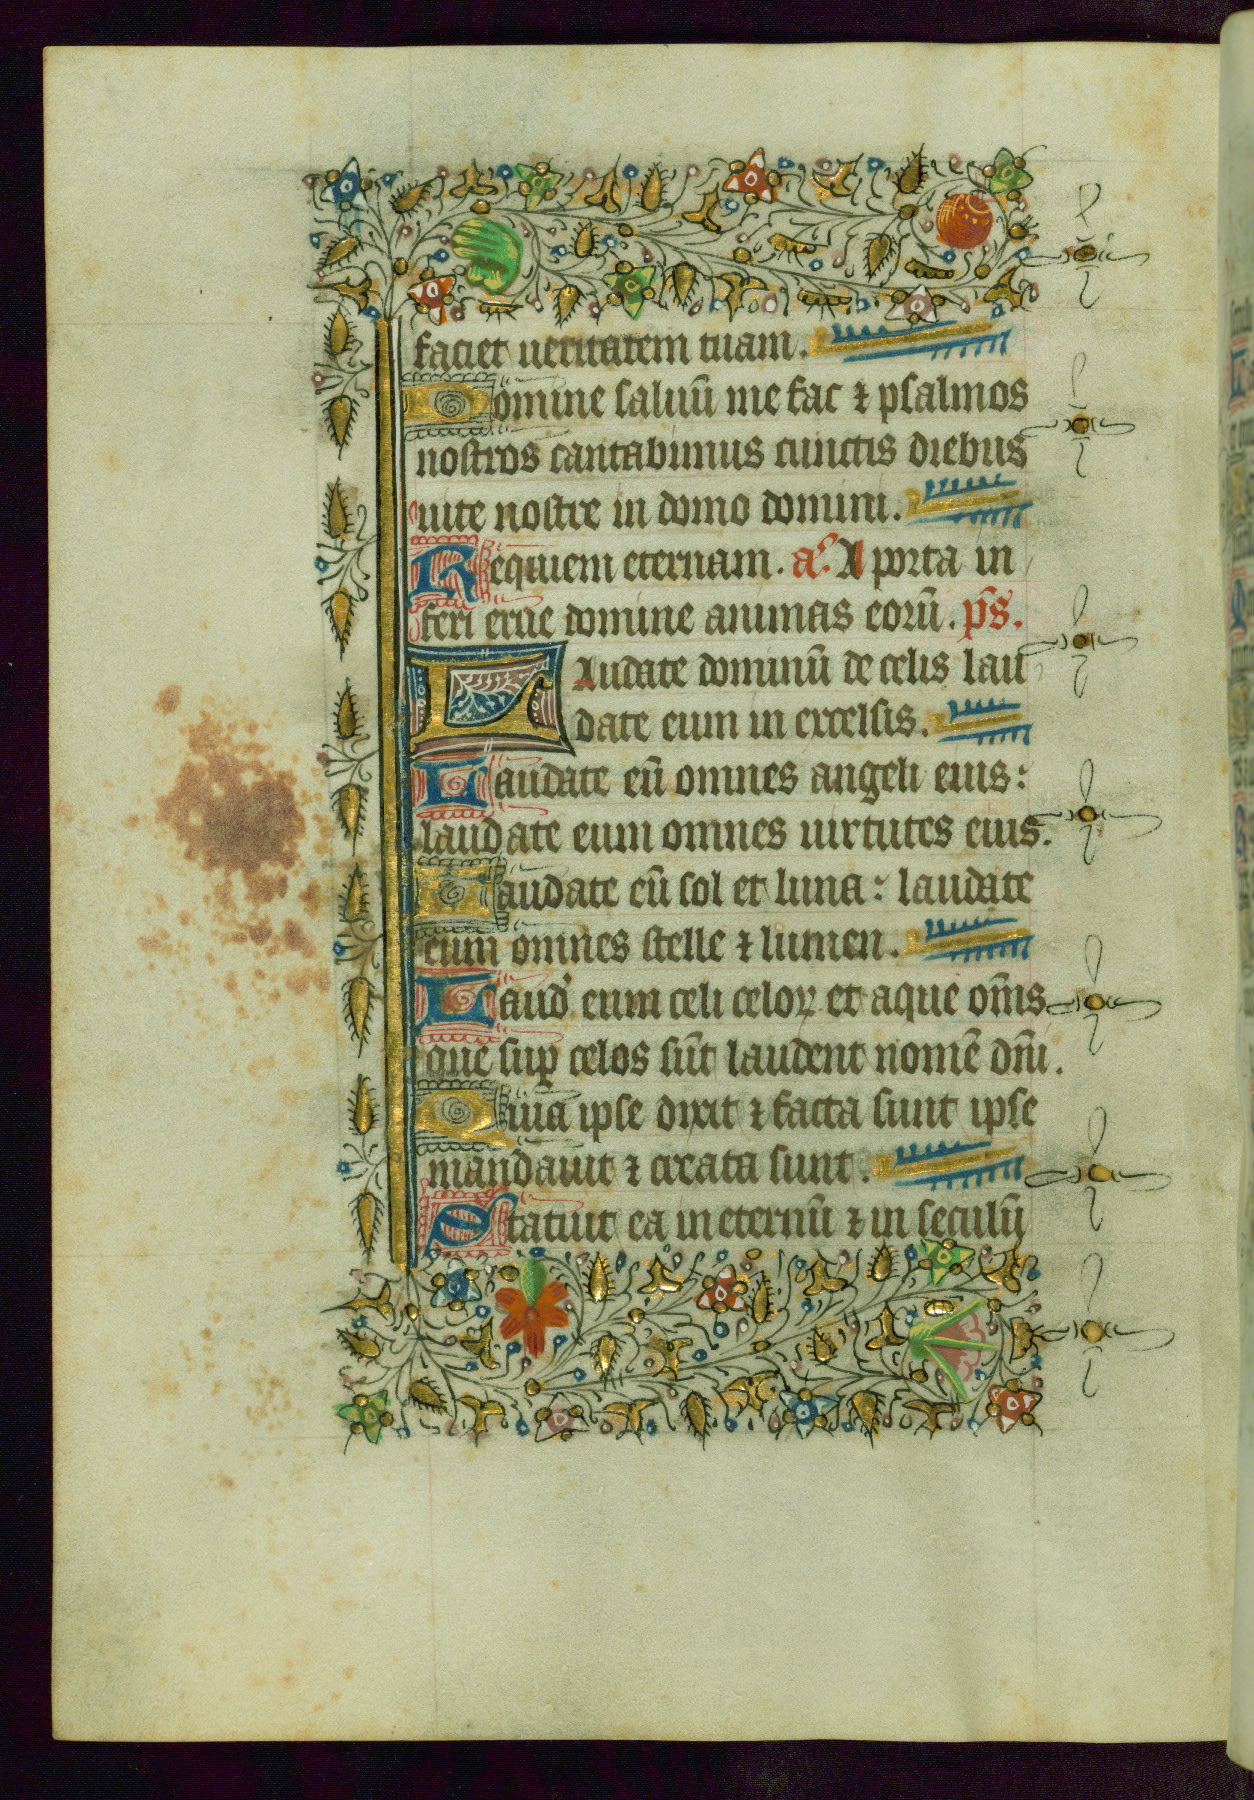 faciet ueritatem tuam.
Domine saluū me fac ⁊ psalmos
nostros cantabimus cunctis diebus
uite nostre in domo domini.
Requiem eternam. aͤ. A porta in
feri erue domine animas eorū. ps̄.
Laudate dominū de celis lau
date eum in excelsis.
Laudate eū omnes angeli eius:
laudate eum omnes uirtutes eius.
Laudate eū sol et luna: laudate
eum omnes stelle ⁊ lumen.
Laud' eum celi celoꝝ et aque om̄s
que suꝑ celos sūt laudent nomē dn̄i.
Quia ipse dixit ⁊ facta sunt ipse
mandauit ⁊ creata sunt.
Statuit ea in eternū ⁊ in seculū